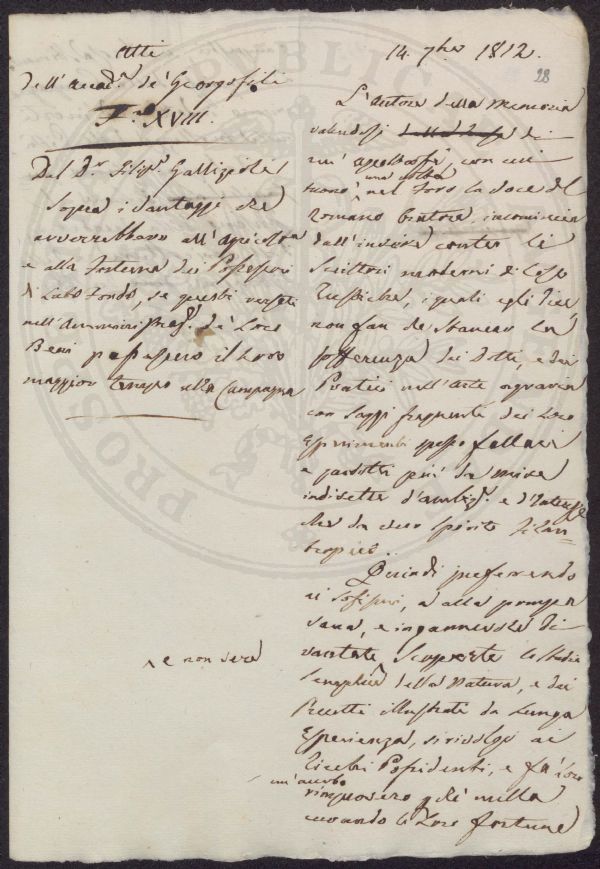 Atti
dell'Accad.ª de' Georgofili
F. XVIII.
Del D.r Filip.º Gallizioli
Sopra i Vantaggi che
avverrebbano all'Agricoltª
e alla Fortuna dei Possessori
di Lato Fondo, se questi versati
nell'Amministraz.e de' Loro
Beni passassero il Loro
maggior tempo alla Campagna
e non vera
14. 7bre 1812.
28
L'Autore della Memoria
valendosi di
un' apostrofe, con cui
tuonò una volta nel Foro la voce del
Romano Oratore, incomincia
dall'inveire contro li
Scrittori moderni di Cose
Rustiche, i quali egli dice,
non fan che stancar la
sofferenza dei Dotti, e dei
Pratici nell'Arte agraria
con Saggi frequenti dei Loro
Esperimenti spesso fallaci
e prodotti più da mire
indirette d'ambiz.e e d'Interesse
che da vero spirito filan=
tropico.
Quindi preferendo
ai sofismi, e alla pompa
vana, e ingannevole di
vantate Scoperte lo Studio
semplice della Natura, e dei
Precetti illustrati da Lunga
Esperienza, si rivolge ai
Ricchi Possidenti, e fa loro
un'acerbo
rimprovero che nulla
curando le Loro fortune